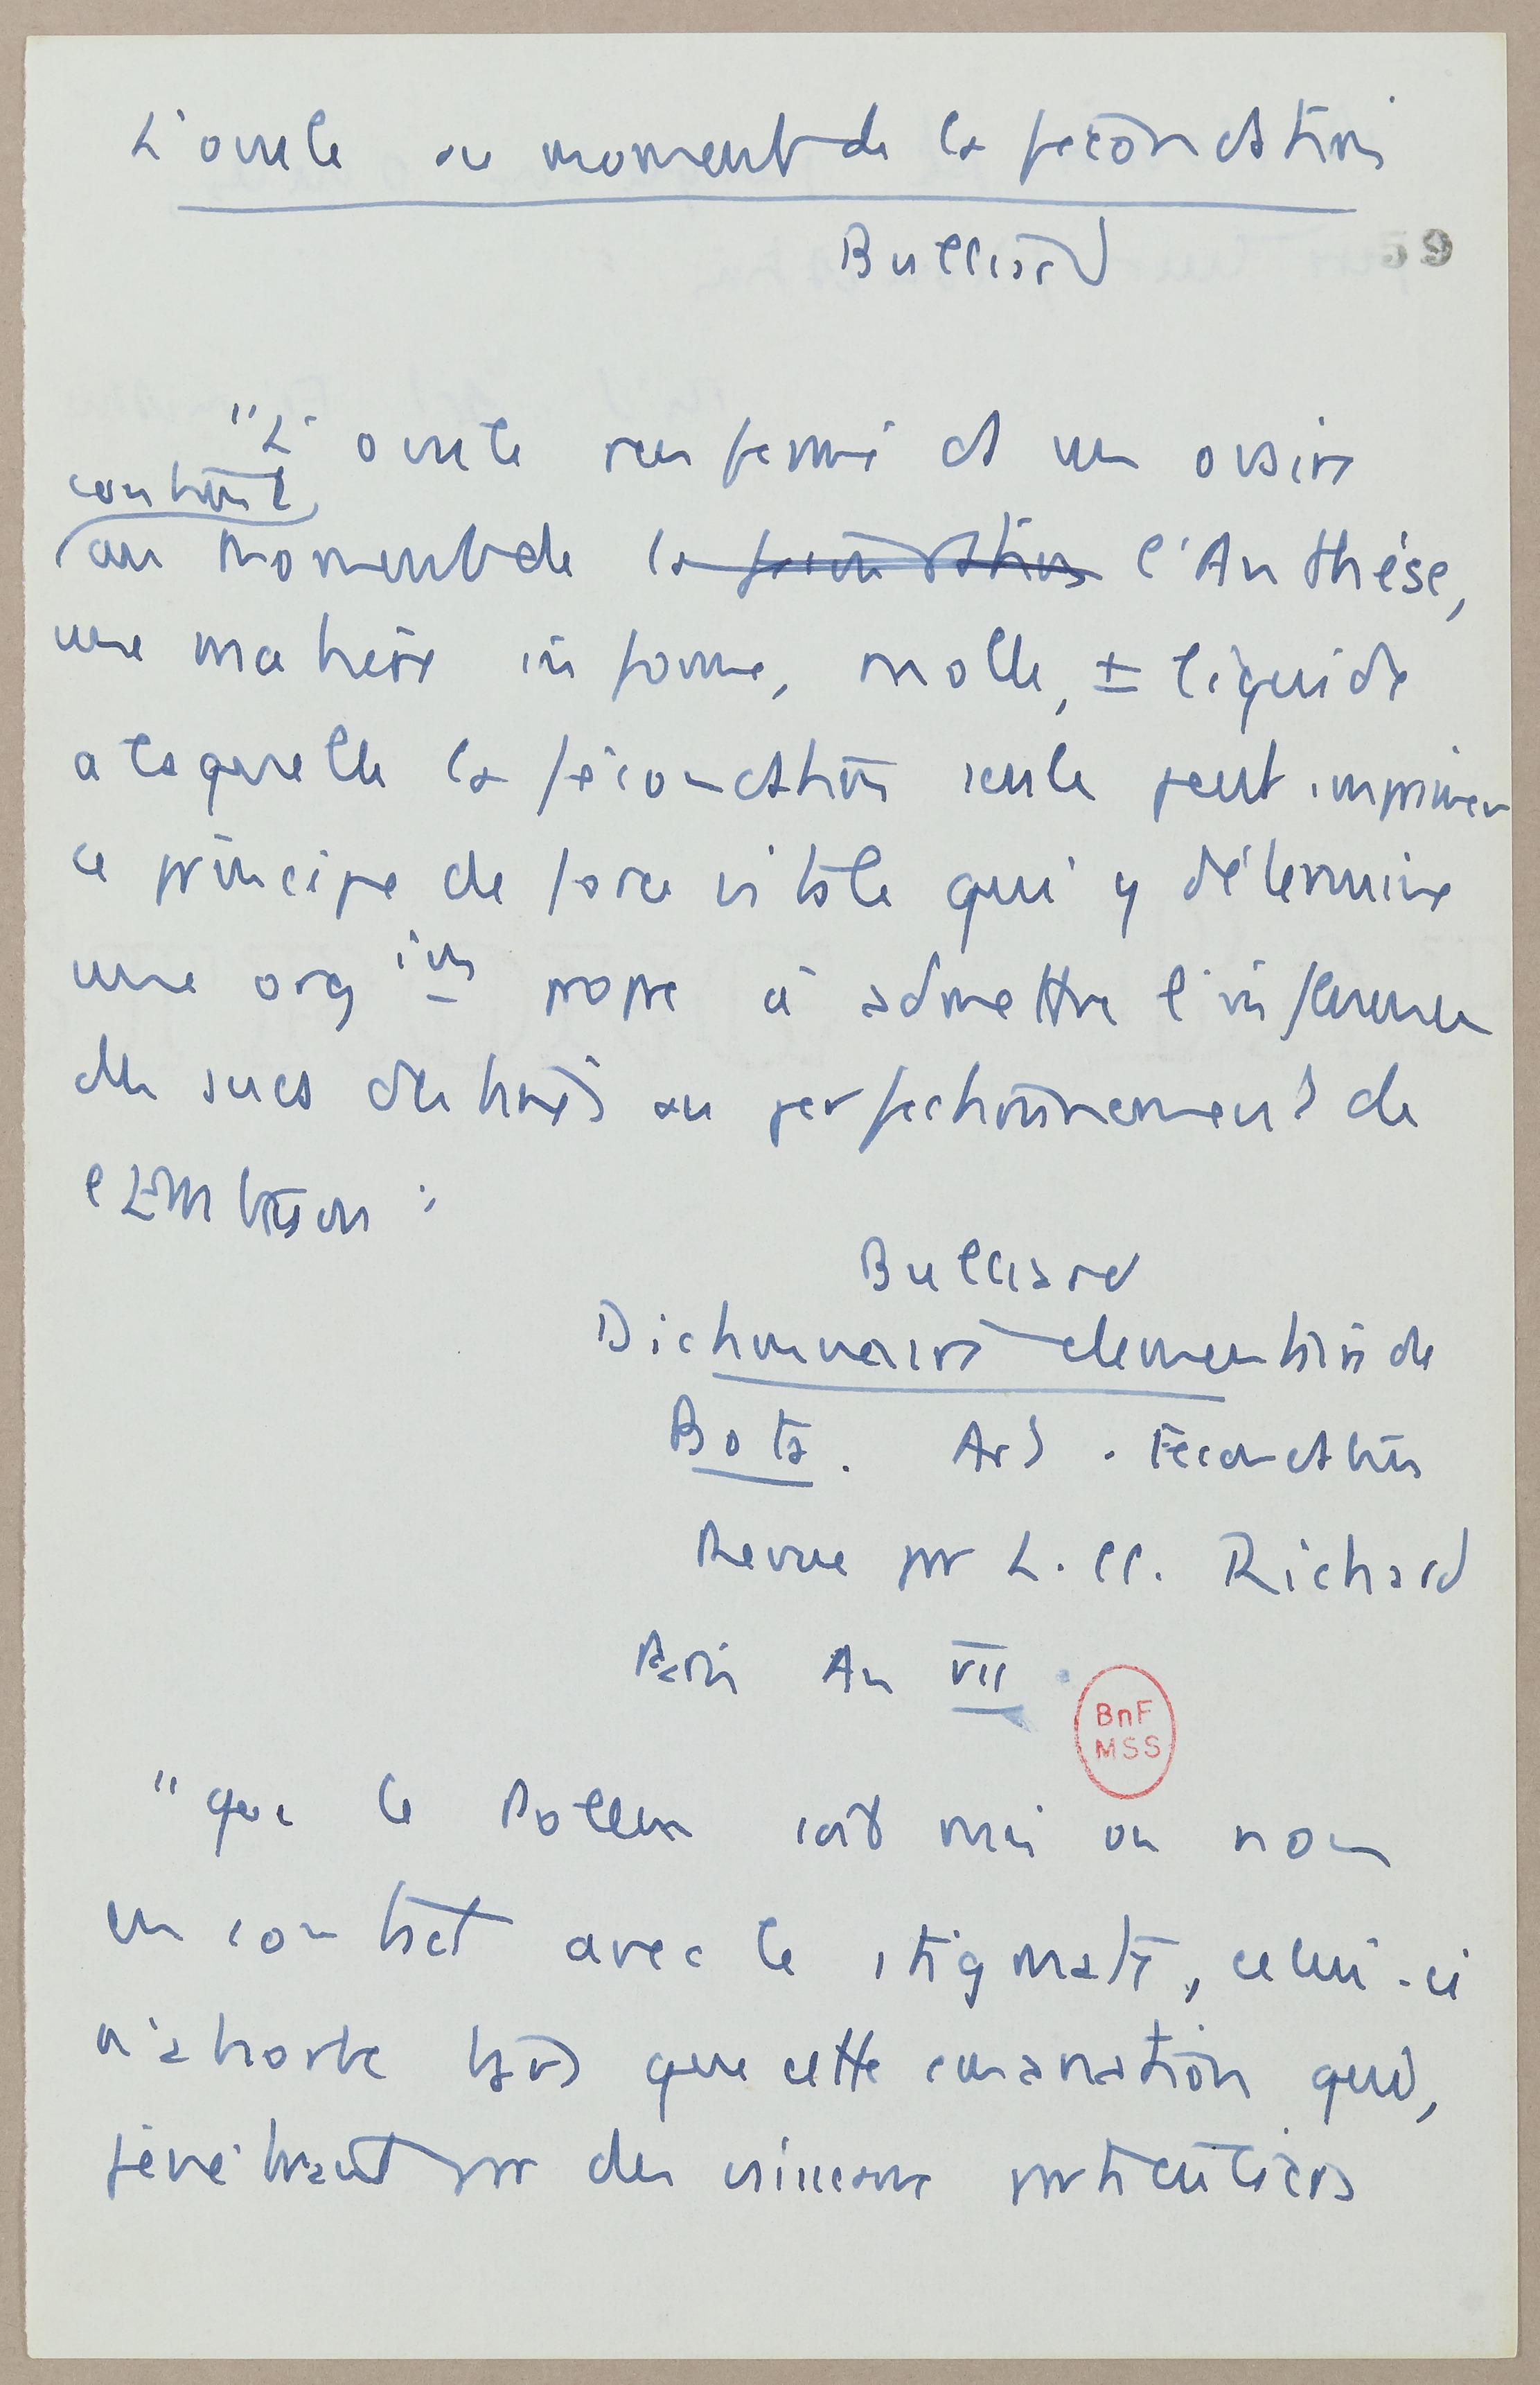 L'ovule au moment de la fécondation
Bulliard
"L'ovule renfermé ds un ovaire
contient
au moment de la fécondation l'Anthèse,
une matière informe, molle, ± liquide
a laquelle la fécondation seule peut imprimer
ce principe de force vitale qui y détermine
une org ion propre à admettre l'influence
des sucs destinés au perfectionnement de
l'Embryon :
Bulliard
Dictionnaire élémentaire de
Bota. Art. Fécondation
Revue par L. Cl. Richard
Paris An VII
BnF
MSS
"que le Pollen soit mis ou non
en contact avec le stigmate, celui-ci
n'absorbe que cette émanation qui,
pénétrant par des vaisseaux particuliers